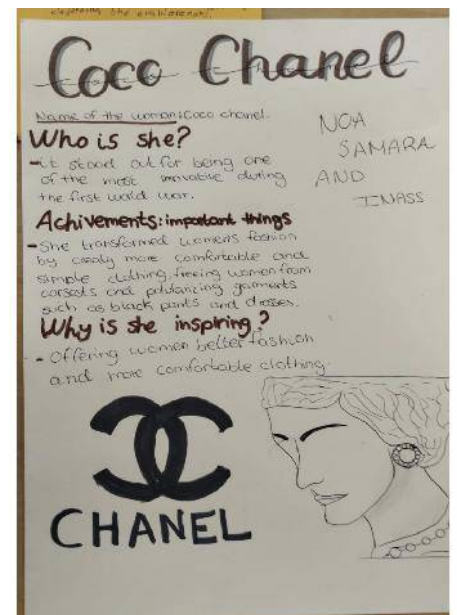 exploring the
Coco Chanel
Name of the woman: Coco chanel.
NOA
SAMARA
AND
INASS
Who is she?
- it stood out for being one
of the most inovative during
the first world war.
Achivements: important things
- She transformed womens fashion
by more comfortable and
simple clothing, freeing women from
corsets and garments
such as black pants and dresses.
Why is she inspiring?
- Offering women better fashion
and more comfortable clothing.
CHANEL